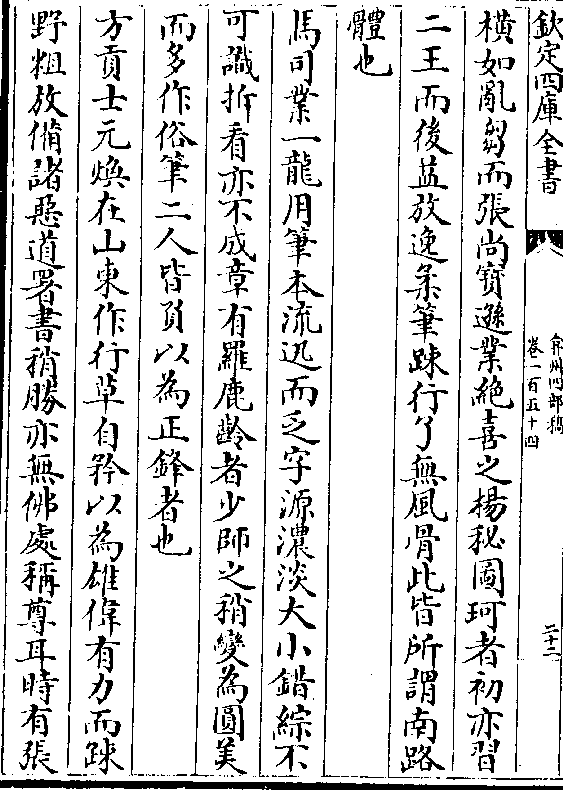 欽定四庫全書
弇州四部稿
卷一百五十四
二十二
横如亂芻而張尚寳遜業絶喜之楊秘圖珂者初亦習
二王而後益放逸柔筆踈行了無風骨此皆所謂南路
體也
馬司業一龍用筆本流迅而乏字源濃淡大小錯綜不
可識拆看亦不成章有羅鹿齡者少師之稍變為圓美
而多作俗筆二人皆負以為正鋒者也
方貢士元煥在山東作行草自矜以為雄偉有力而踈
野粗放備諸惡道署書稍勝亦無佛處稱尊耳時有張